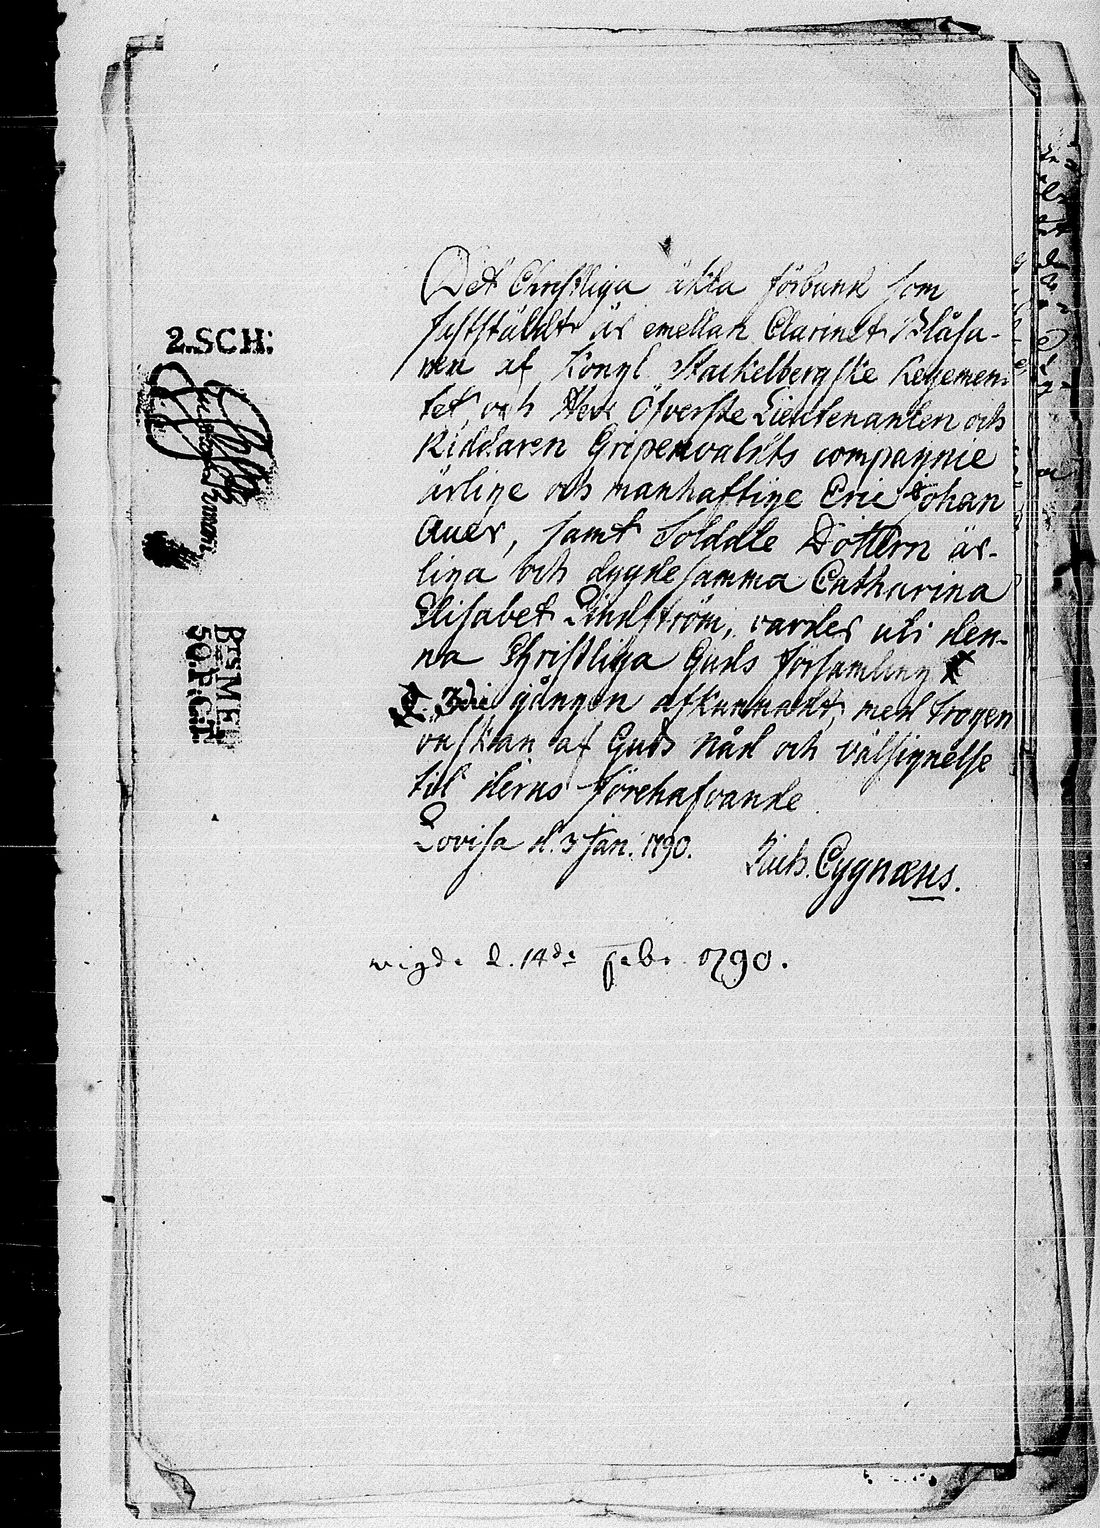 2.SCH:
BTS MEL
50.P.C:T.
Det Christliga äkta förbund som
fastställdt är emellan Clarinet Blåsa-
ren af Kongl Stackelbergske Regemen-
tet, och Herr Öfverste Lieutenanten och
Riddaren Gripenvaldts compagnie
ärlige och manhaftige Eric Johan
Auer, samt Soldate Dottern är-
liga och dygdesamma Catharina
Elisabet Lindström, varder uti den-
na Christliga Guds församling
3die gången afkunnadt, med trogen
onskan af Guds Nåd och välsignelse
till deras förehafvande
Lovisa d. 3 Jan. 1790.
Cygnæus.
wigde d. 14de Febr. 1790.